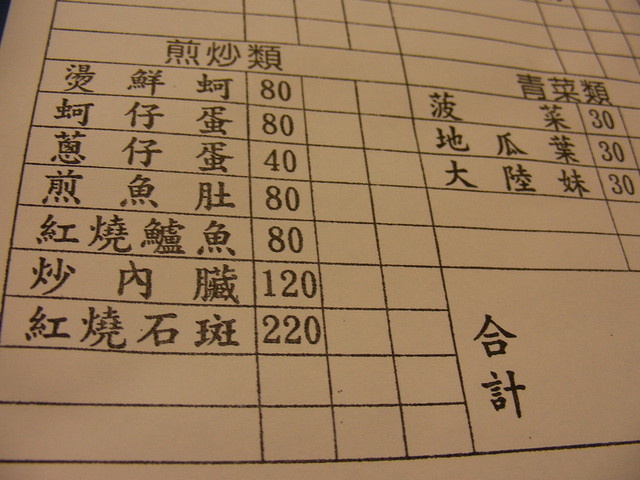 煎炒類
燙鮮蚵 80
蚵仔蛋 80
蔥仔蛋 40
煎魚肚 80
紅燒鱸魚 80
炒內臟 120
紅燒石斑 220
青菜類
菠菜 30
地瓜葉 30
大陸妹 30
合計